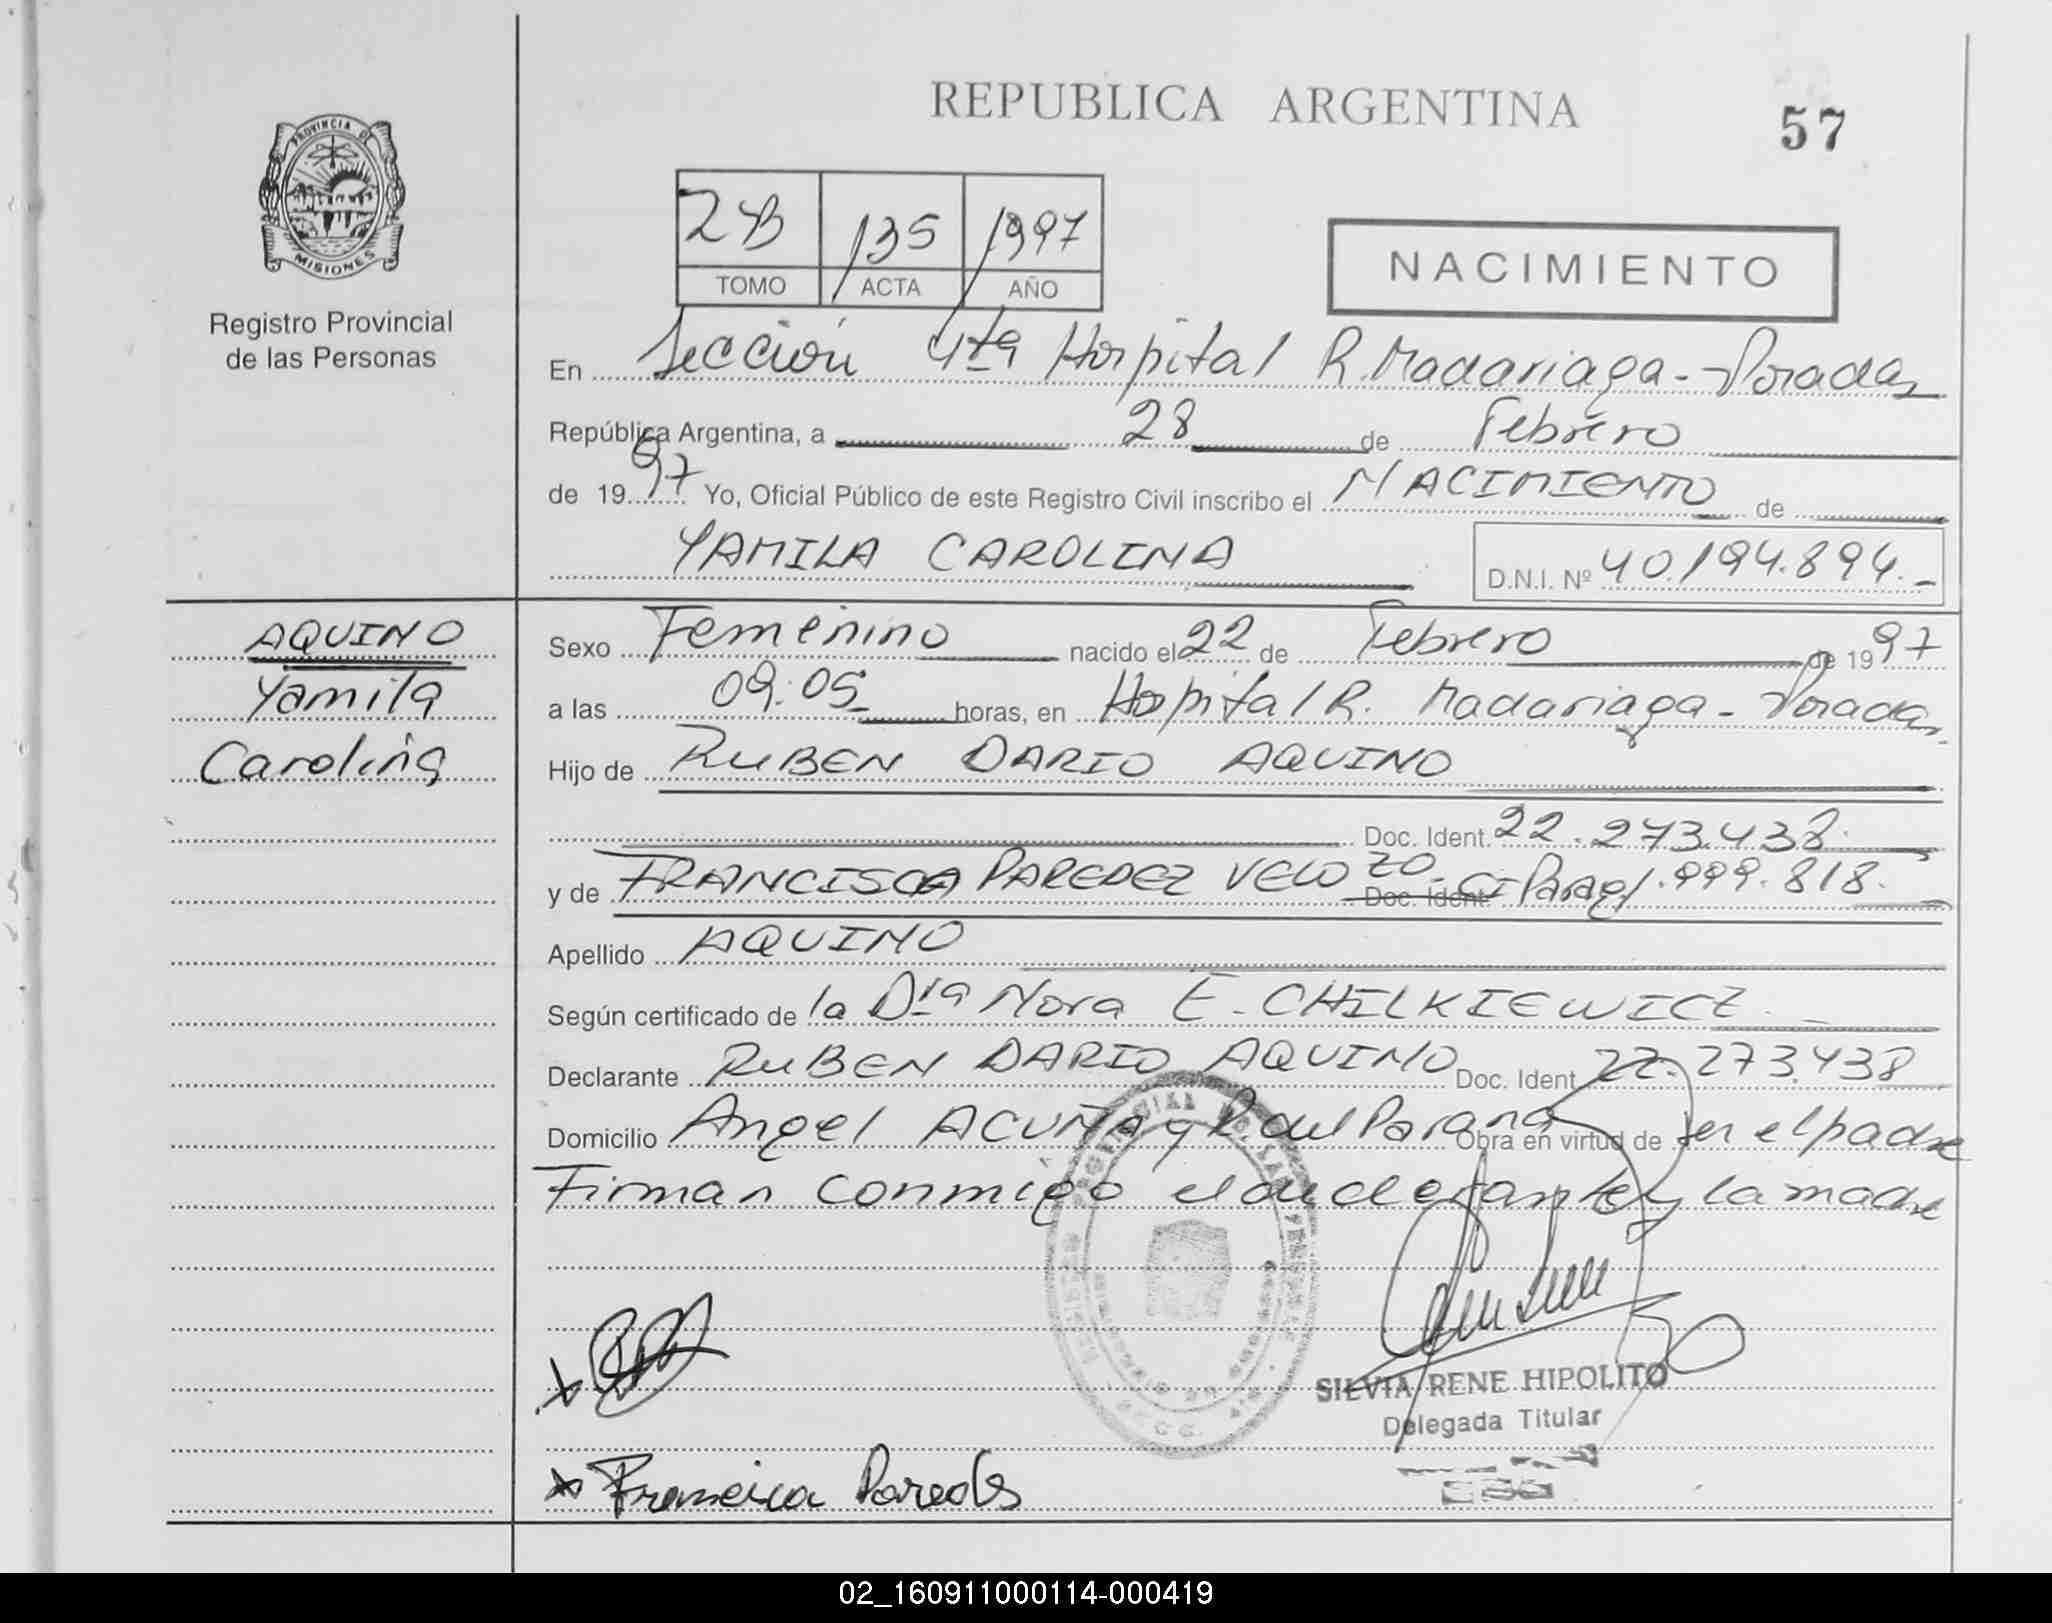 REPUBLICA ARGENTINA
57
PROVINCIA DE
MISIONES
Registro Provincial
de las Personas
2B 135 1997
TOMO ACTA AÑO
NACIMIENTO
En Sección 4ta Hospital R. Madariaga - Posadas
República Argentina, a 28 de Febrero
de 1997 Yo, Oficial Público de este Registro Civil inscribo el NACIMIENTO de
YAMILA CAROLINA D.N.I. Nº 40.194.894.-
AQUINO
Yamila
Carolina
Sexo Femenino nacido el 22 de Febrero de 1997
a las 09:05 horas, en Hospital R. Madariaga - Posadas
Hijo de RUBEN DARIO AQUINO
Doc. Ident. 22.273.438.
y de FRANCISCA PAREDEZ VELOZO - Doc. Ident. CI Parag. 999.818.
Apellido AQUINO
Según certificado de la Dra Nora E. CHILKIEWICZ.
Declarante RUBEN DARIO AQUINO Doc. Ident. 22.273.438
Domicilio Angel ACUÑA y R. del Parana Obra en virtud de ser el padre
Firman conmigo el declarante y la madre
SILVIA RENE HIPOLITO
Delegada Titular
x Francisca Paredes
02_160911000114-000419